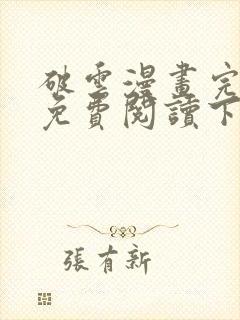 破雲漫畫完
免費閱讀下
張有新